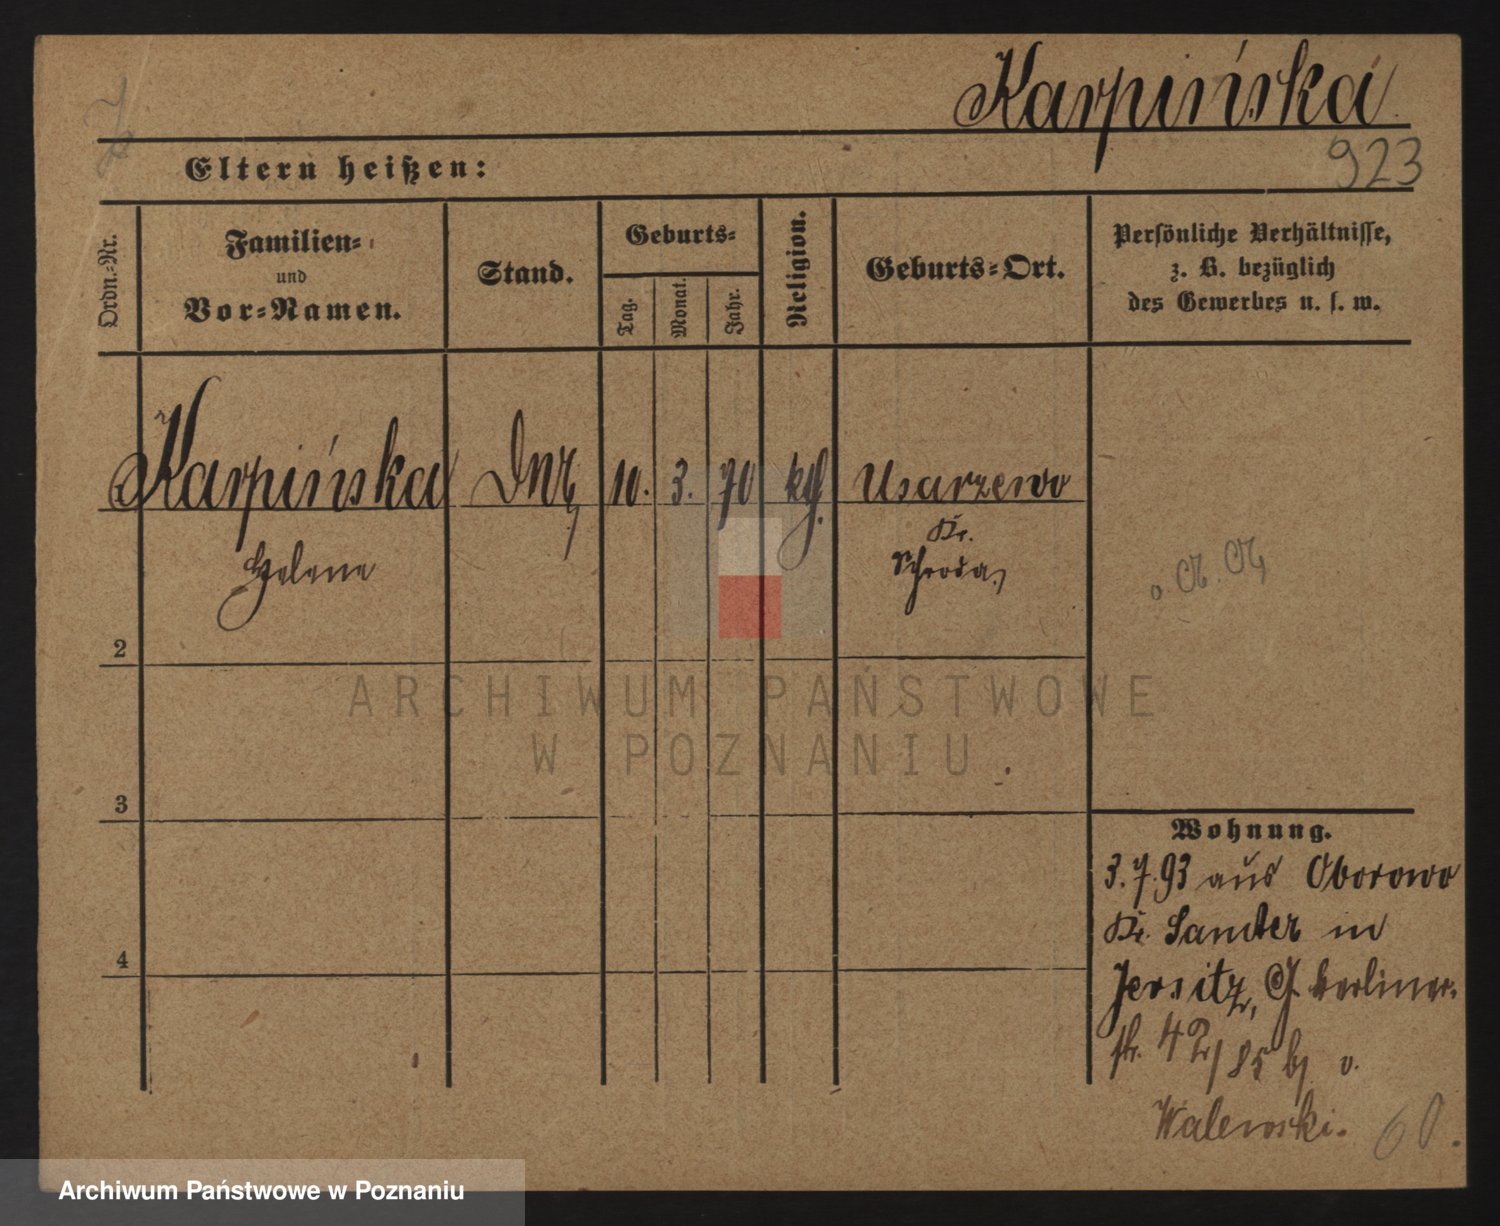 Karpińska
Eltern heißen:
923
Ordn.-Nr.
Familien-
und
Vor-Namen.
Stand.
Geburts-
Tag.
Monat.
Jahr.
Religion.
Geburts-Ort.
Persönliche Verhältnisse,
z. B. bezüglich
des Gewerbes u. s. w.
Karpińska
10. 3. 70
Usarzewo
Helene
Kr.
Schroda
2
3
4
ARCHIWUM PAŃSTWOWE
W POZNANIU
Wohnung.
3.7.93 aus Oborowo
Kr. Samter in
Jersitz, Gr. Berliner-
str. 42/85 bei v.
Walewski.
60.
Archiwum Państwowe w Poznaniu